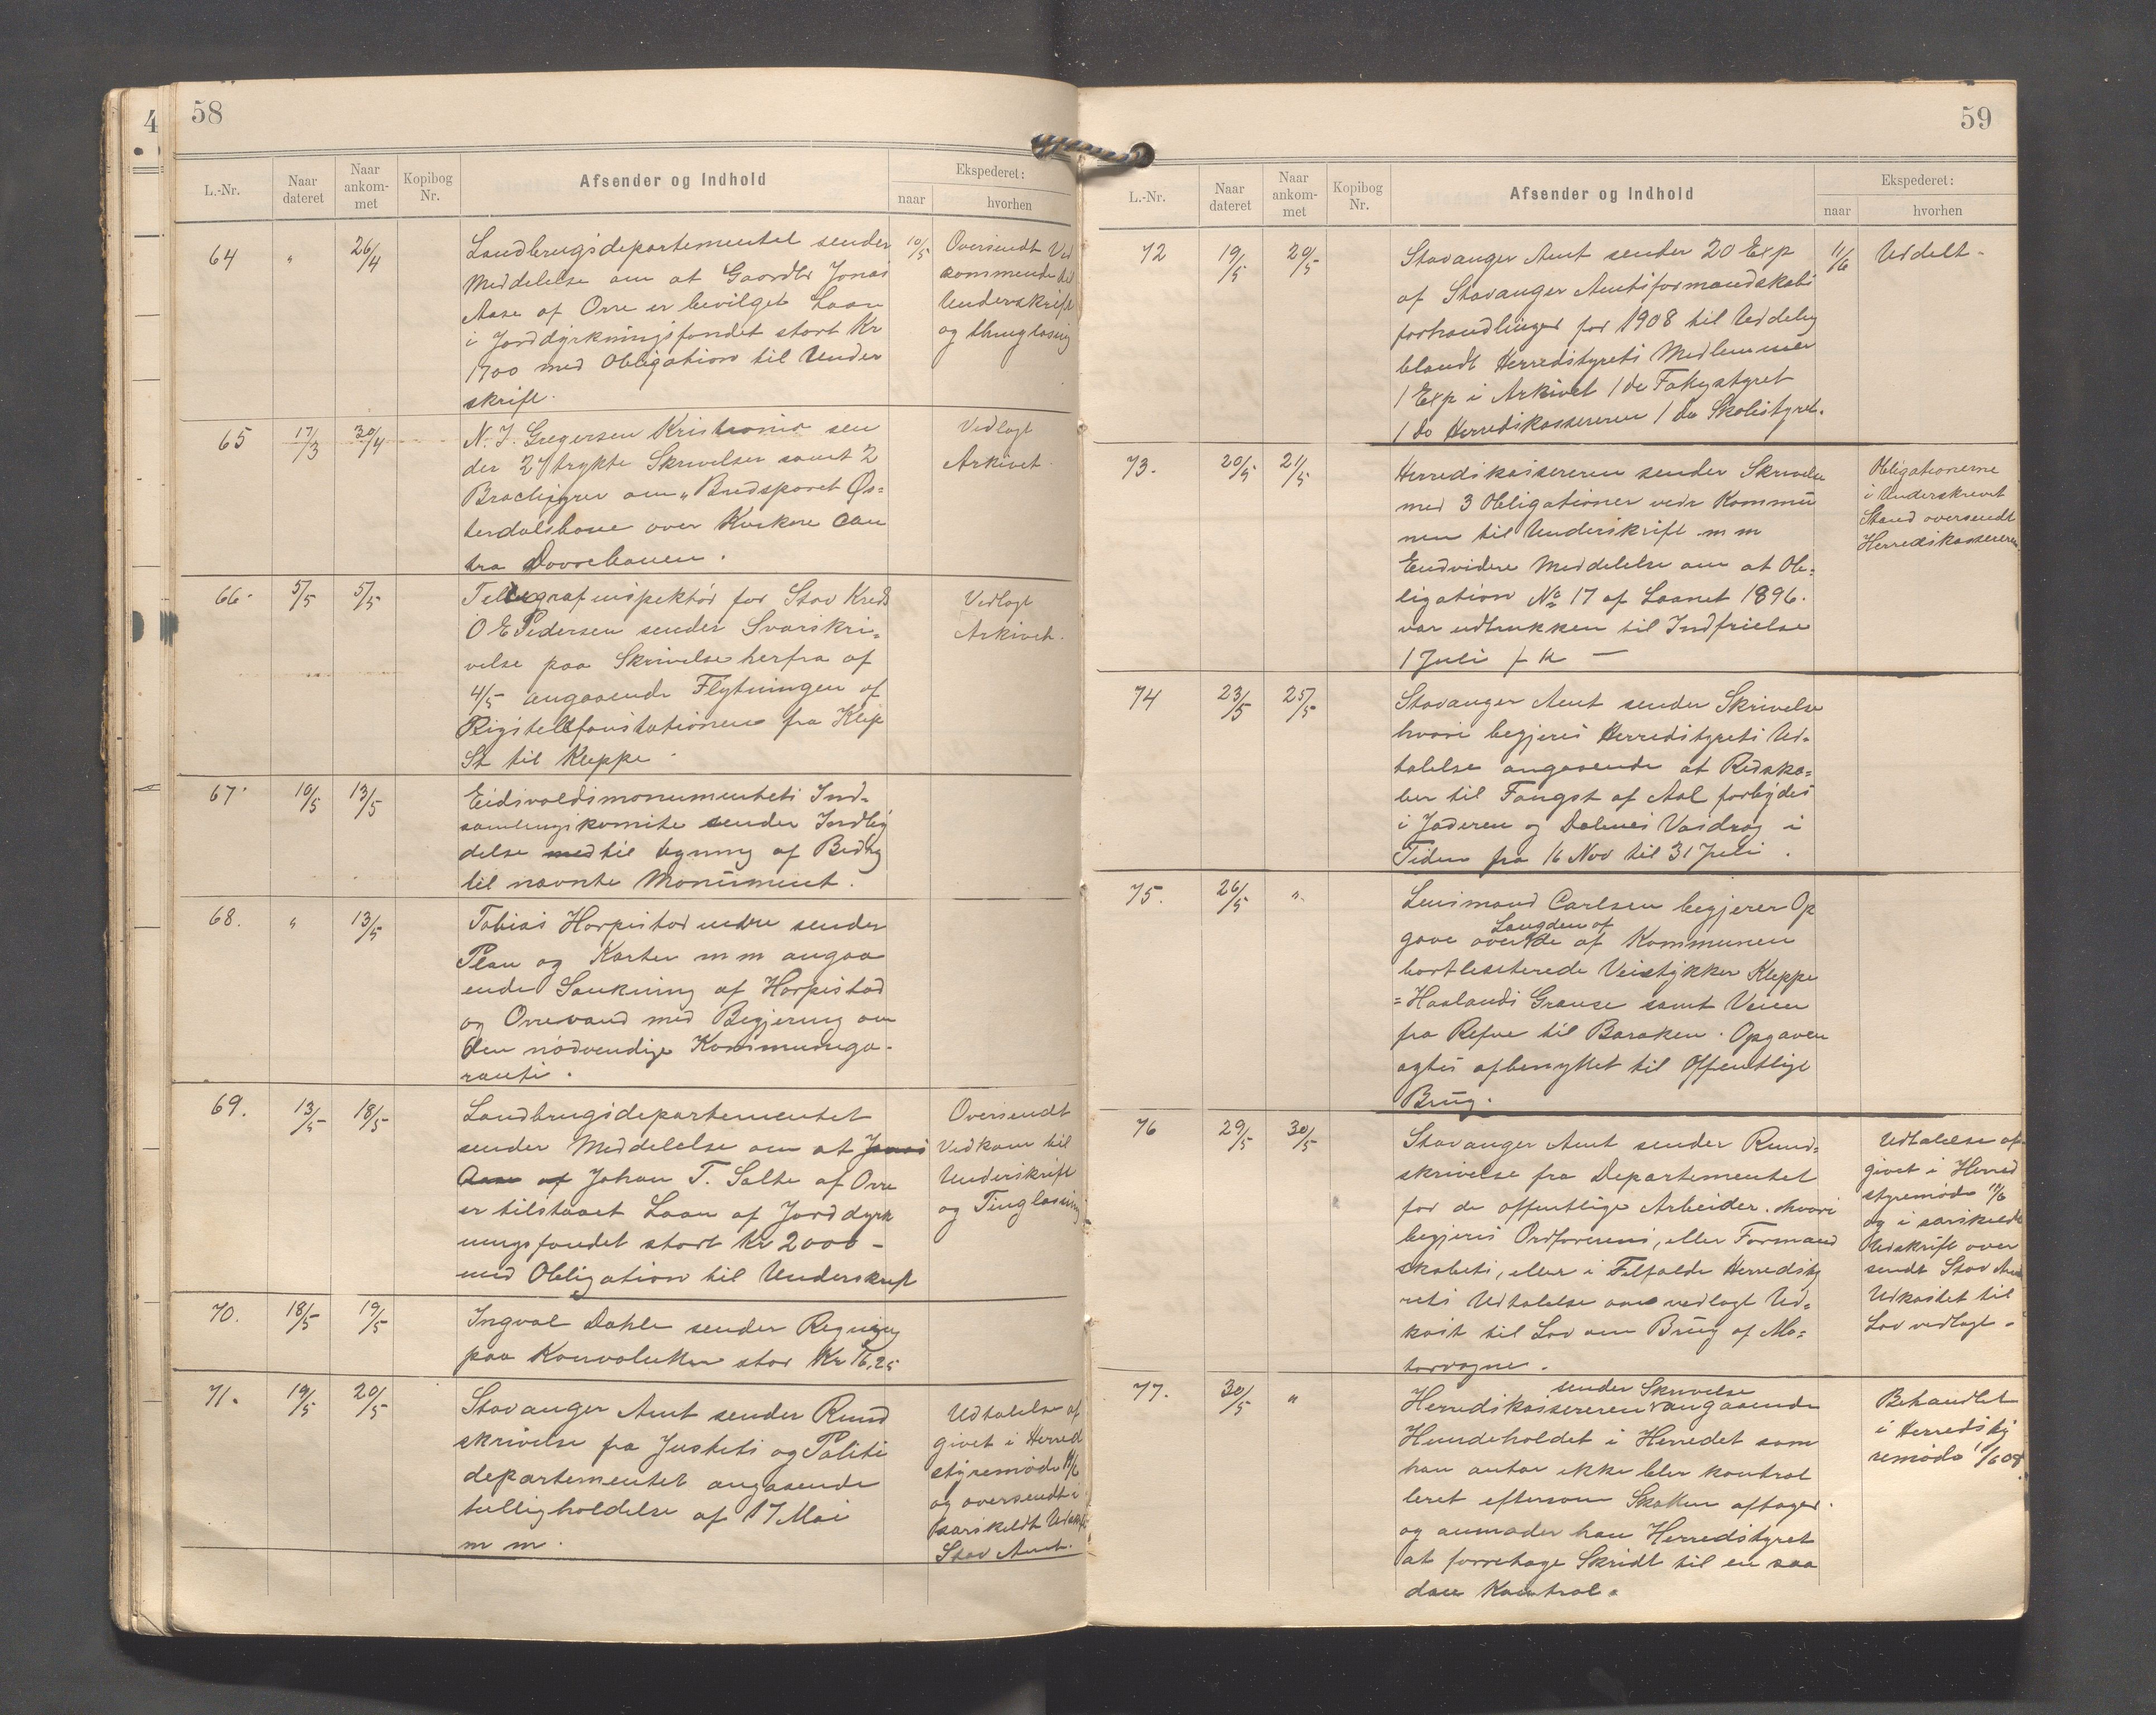 58
L.-Nr.
Naar dateret
Naar ankom-met
Kopibog Nr.
Afsender og Indhold
Ekspederet:
naar
hvorhen
64 " 26/4
Landbrugsdepartementet sender
Meddelelse om at Gaardbr Jonas
Aase af Orre er bevilget Laan
i Jorddyrkningsfondet stort Kr
1700 med Obligation til Under
skrift.
10/5
Oversendt Ved
kommende til
Underskrift
og thinglæsing
65 17/3 30/4
N. J. Gregersen Kristiania sen
der 2 trykte Skrivelser samt 2
Brochyrer om „Bredsporet Øs=
terdalsbane over Kvikne Con
tra Dovrebanen.
Vedlagt
Arkivet.
66. 5/5 5/5
Telegrafinspektør for Stav Kreds
O E Pedersen sender Svarskri=
velse paa Skrivelse herfra af
4/5 angaaende Flytningen af
Rigstelefonstationen fra Klep
St til Kleppe.
Vedlagt
Arkivet.
67. 10/5 13/5
Eidsvoldsmonumentets Ind=
samlingskomite sender Indby
delse med til tegning af Bidrag
til nævnte Monument.
68. " 13/5
Tobias Horpestad nedre sender
Plan og Karter m m angaa
ende Sænkning af Horpestad
og Orrevand med Begjering om
den nødvendige Kommunega=
ranti.
69. 13/5 18/5
Landbrugsdepartementet
sender Meddelelse om at Jonas
Aase af Johan T. Salte af Orre
er tilstaaet Laan af Jorddyrk
ningsfondet stort Kr 2000 -
med Obligation til Underskrift
Oversendt
Vedkom til
Underskrift
og Tinglæsning
70. 18/5 19/5
Ingval Dahle sender Regning
paa Konvolutter stor Kr 16,25
71. 19/5 20/5
Stavanger Amt sender Rund
skrivelse fra Justits og Politi
departementet angaaende
helligholdelse af 17 Mai
m m.
Udtalelse af
givet i Herred
styremøde 11/6
og oversendt i
særskildt Udskr
Stav Amt.
59
L.-Nr.
Naar dateret
Naar ankom-met
Kopibog Nr.
Afsender og Indhold
Ekspederet:
naar
hvorhen
72 19/5 20/5
Stavanger Amt sender 20 Exp
af Stavanger Amtsformandskabs
forhandlinger for 1908 til Uddeling
blandt Herredstyrets Medlemmer
1 Exp i Arkivet 1 do
1 do Herredskassereren 1 do Skolestyret.
11/6
Uddelt -
73. 20/5 21/5
Herredskassereren sender Skrivelse
med 3 Obligationer vedr Kommu
nen til Underskrift m m
Endvidere Meddelelse om at Ob=
ligation No 17 af Laanet 1896.
var udtrukken til Indfrielse
1 Juli f k —
Obligationerne
i Underskrevet
Stand oversendt
Herredskassereren
74 23/5 25/5
Stavanger Amt sender Skrivelse
hvori begjeres Herredstyrets Ud=
talelse angaaende at Redska=
ber til Fangst af Aal forbydes
i Jæderen og Dalenes Vasdrag i
Tiden fra 16 Nov til 31 Juli.
75. 26/5 "
Lensmand Carlsen begjerer Op
Længden af
gave over de af Kommunen
bortlisiterede Veistykker Kleppe
= Haalands Grænse samt Veien
fra Refve til Baraken. Opgaven
agtes afbenyttet til Offentlige
Brug.
76 29/5 30/5
Stavanger Amt sender Rund=
skrivelse fra Departementet
for de offentlige Arbeider. hvori
begjeres Ordførerens, eller Formand
skabets, eller i Tilfælde Herredsty
rets Udtalelse om vedlagt Ud=
kast til Lov om Brug af Mo=
torvogne.
Udtalelse af=
givet i Herred
styremøde 11/6
og i særskildt
Udskrift over
sendt Stav Amt
Udkastet til
Lov vedlagt.
77. 30/5 "
sender Skrivelse
Herredskassereren angaaende
Hundeholdet i Herredet som
han antar ikke blir kontrol
leret eftersom Skatten aftager.
og anmoder han Herredstyret
at foretage Skridt til en saa
dan Kontrol.
Behandlet
i Herredsty
remøde 11/6 08